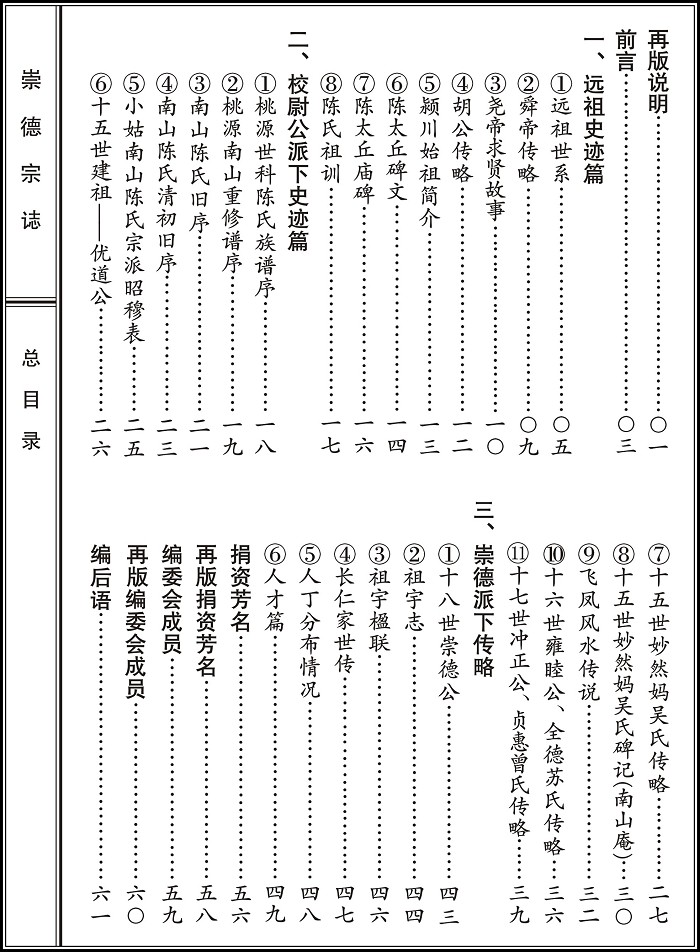 崇德宗誌
总目录
再版说明……〇一
前言……〇三
一、远祖史迹篇
①远祖世系……〇五
②舜帝传略……〇九
③尧帝求贤故事……一〇
④胡公传略……一二
⑤颍川始祖简介……一三
⑥陈太丘碑文……一四
⑦陈太丘庙碑……一六
⑧陈氏祖训……一七
二、校尉公派下史迹篇
①桃源世科陈氏族谱序……一八
②桃源南山重修谱序……一九
③南山陈氏旧序……二一
④南山陈氏清初旧序……二三
⑤小姑南山陈氏宗派昭穆表……二五
⑥十五世建祖——优道公……二六
⑦十五世妙然妈吴氏传略……二七
⑧十五世妙然妈吴氏碑记(南山庵)……三〇
⑨飞凤风水传说……三二
⑩十六世雍睦公、全德苏氏传略……三六
⑪十七世冲正公、贞惠曾氏传略……三九
三、崇德派下传略
①十八世崇德公……四三
②祖宇志……四四
③祖宇楹联……四六
④长仁家世传……四七
⑤人丁分布情况……四八
⑥人才篇……四九
捐资芳名……五六
再版捐资芳名……五八
编委会成员……五九
再版编委会成员……六〇
编后语……六一